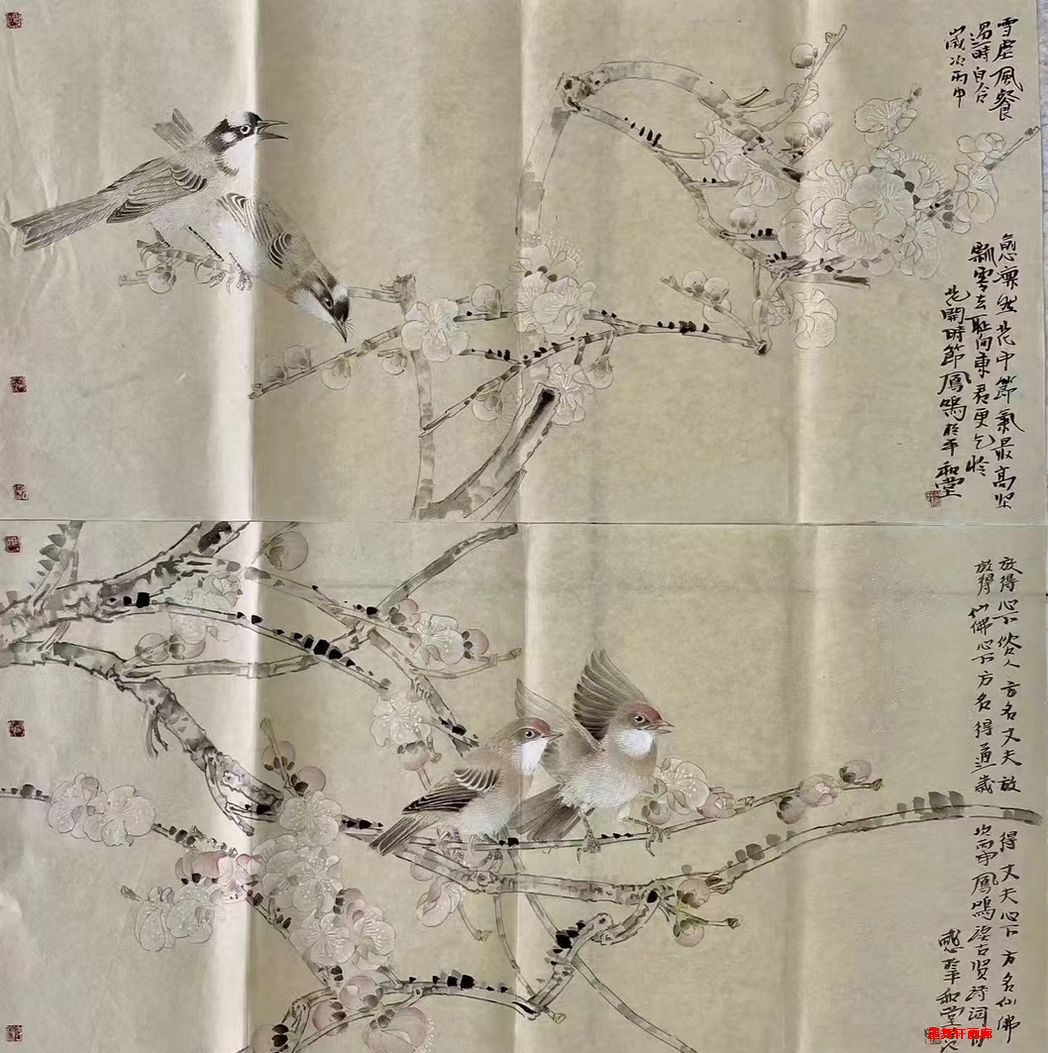 雪虐風餐愈凛然花中節氣最高坚
過時自合飄零去耻向東君更乞怜
歲次丙申花開時節鳳鳴於平和堂
放得心下俗人方名丈夫放得丈夫心下方名仙佛
放得仙佛心下方名得道歲次丙申鳳鳴古贤詩词
於平和堂
轩画廊